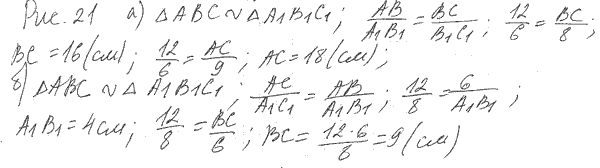 Рис. 21 а) △ABC ∾ △A1B1C1; AB/A1B1 = BC/B1C1; 12/6 = BC/8;
BC = 16 (см); 12/6 = AC/9; AC = 18 (см);
б) △ABC ∾ △A1B1C1; AC/A1C1 = AB/A1B1; 12/8 = 6/A1B1;
A1B1 = 4 см; 12/8 = BC/6; BC = 12·6/8 = 9 (см)